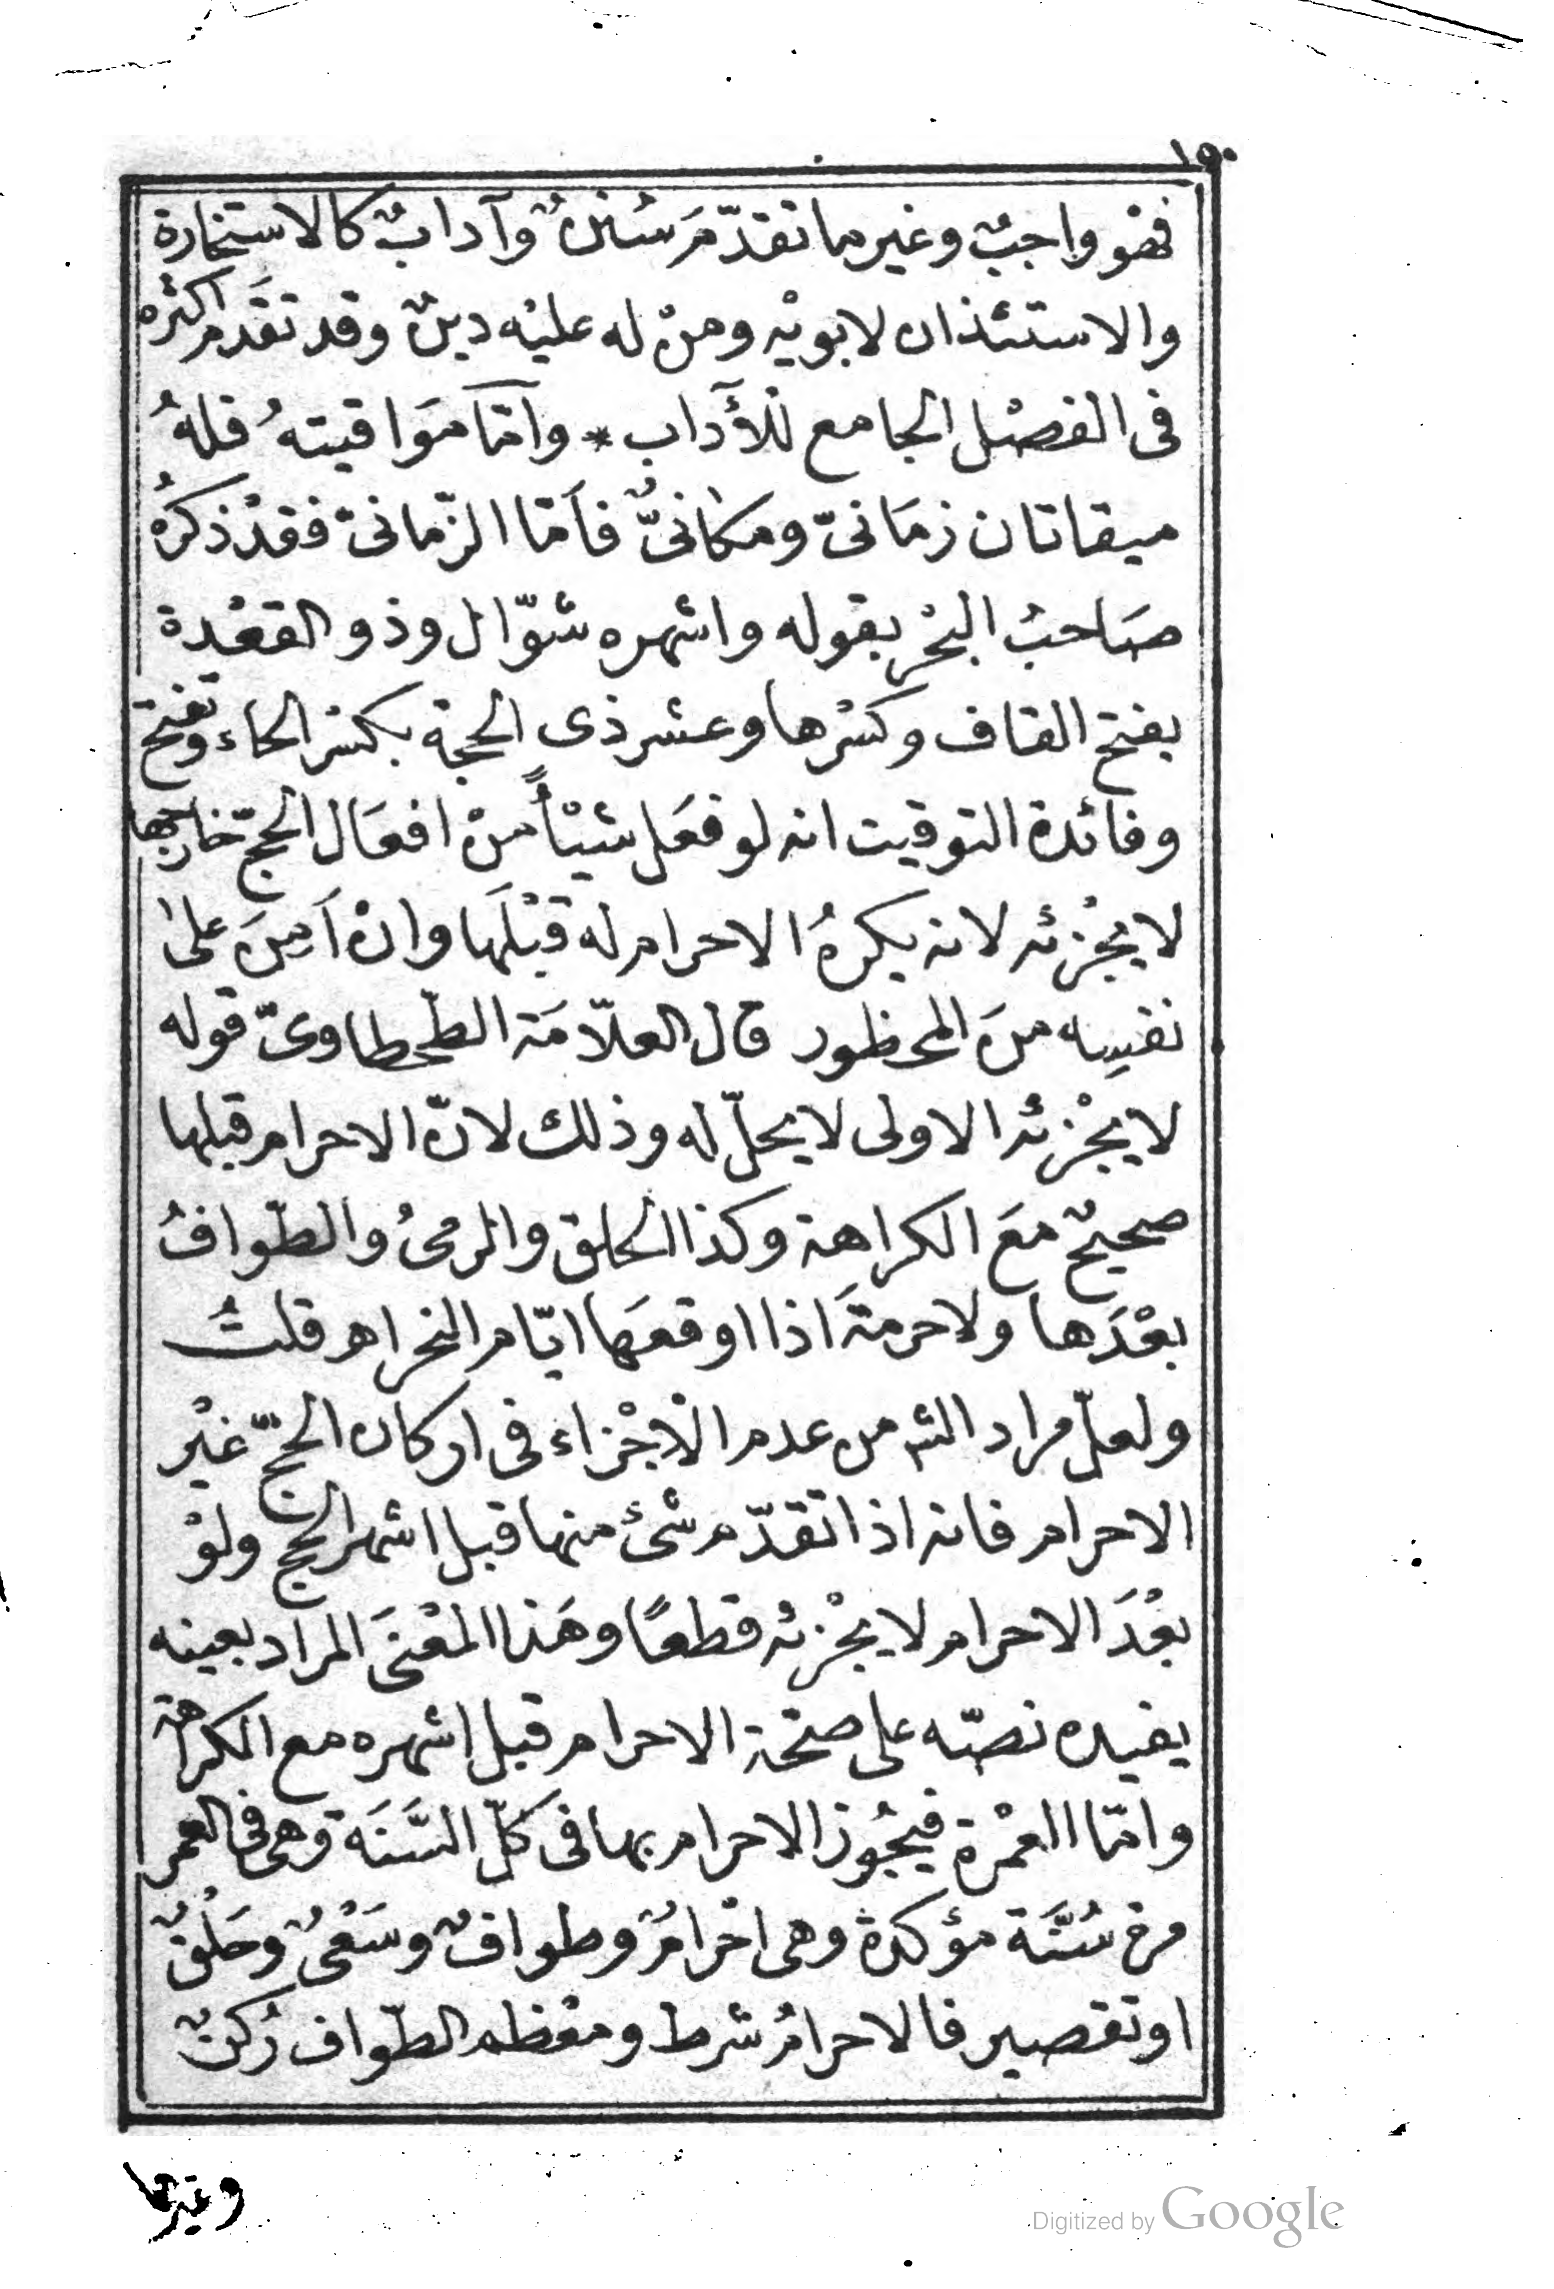 ١٥٠
فهو واجبٌ وغير ما تقدّمَ سُننٌ وآدابٌ كالاستخارة
والاستئذان لابويْه ومنْ له عليْه دينٌ وقد تقَدم اكثره
فى الفصْل الجامع للْآداب * وامّا مَواقيتهُ فلهُ
ميقاتان زمَانىّ ومكانىٌّ فاَمّا الزّمانىّ فقدْ ذكرُه
صَاحبُ البحْر بقوله واشهره شوّال وذو القعْدة
بفتح القاف وكسْرها وعشر ذى الحجة بكسْر الحاء وتفتح
وفائدة التوقيت انه لو فعَل شيْأً منْ افعَال الحجّ خارجها
لا يجْزئه لانه يكرهُ الاحرام له قبْلَها وانْ اَمِنَ على
نفسِه منَ المحظور قال العلّامَة الطّحطاوىّ قوله
لا يجْزئه الاولى لا يحلّ له وذلك لانّ الاحرام قبلها
صحيحٌ معَ الكراهة وكذا الحلق والرمىُ والطّوافُ
بعْدَها ولا حرمةَ اذا اوقعَها ايّام النحر اهـ قلتُ
ولعلّ مراد الشـ من عدم الْاجْزاء فى اركان الحجّ غيْر
الاحرام فانه اذا تقدّم شئ منها قبل اشهر الحج ولوْ
بعْدَ الاحرام لا يجْزئه قطعًا وهَذا المعْنَى المراد بعينه
يفيده نصّه على صحّة الاحرام قبل اشهره مع الكراهة
وامّا العمْرة فيجُوز الاحرام بها فى كلّ السَّنَة وهى فى العمر
مرة سُنَّة مؤكدة وهى احْرامٌ وطوافٌ وسَعْىٌ وحَلْقٌ
او تقصير فالاحرامُ شرط ومعْظم الطّواف رُكنٌ
وغيرها
Digitized by Google